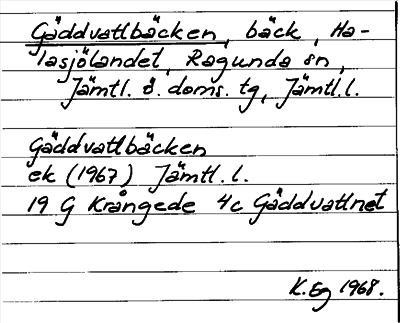 Gäddvattbäcken, bäck, Ha-
lasjölandet, Ragunda sn,
Jämtl. ö. doms. tg, Jämtl.l.
Gäddvattbäcken
ek (1967) Jämtl. l.
19 G Krångede 4c Gäddvattnet
K. Eg 1968.